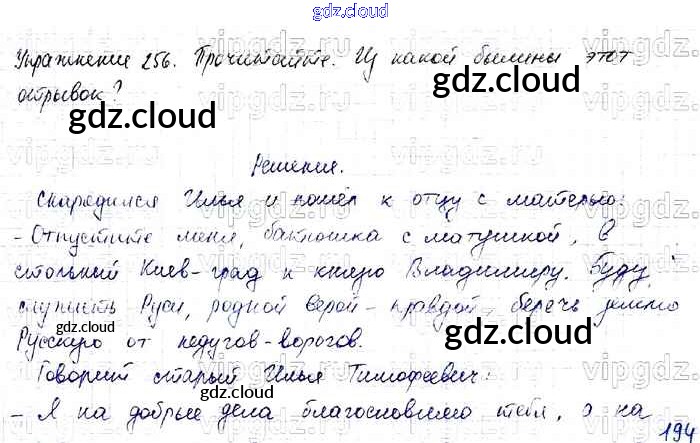 gdz.cloud
Упражнение 256. Прочитайте. Из какой былины этот
отрывок?
gdz.cloud
gdz.cloud
Решение.
Снарядился Илья и пошёл к отцу с матерью:
- Отпустите меня, батюшка с матушкой, в
стольный Киев-град к князю Владимиру. Буду
служить Руси, родной верой-правдой, беречь землю
gdz.cloud
gdz.cloud
Русскую от недугов-ворогов.
Говорит старый Илья Тимофеевич:
- Я на добрые дела благословляю тебя, а на
gdz.cloud
gdz.cloud
194